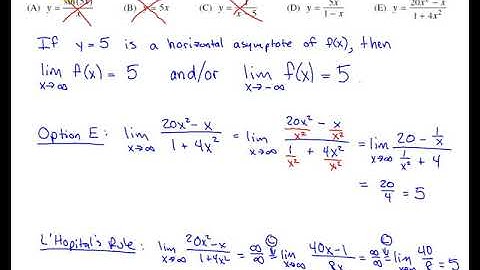 (A) y = sin(5x)/x (B) y = 5x (C) y = 1/(x - 5) (D) y = 5x/(1 - x) (E) y = (20x² - x)/(1 + 4x²)
If y = 5 is a horizontal asymptote of f(x), then
lim x→∞ f(x) = 5 and/or lim x→-∞ f(x) = 5.
Option E: lim x→∞ (20x² - x)/(1 + 4x²) = lim x→∞ (20x²/x² - x/x²)/(1/x² + 4x²/x²) = lim x→∞ (20 - 1/x)/(1/x² + 4)
= 20/4 = 5
L'Hopital's Rule: lim x→∞ (20x² - x)/(1 + 4x²) = ∞/∞ L = lim x→∞ (40x - 1)/8x = ∞/∞ L = lim x→∞ 40/8 = 5